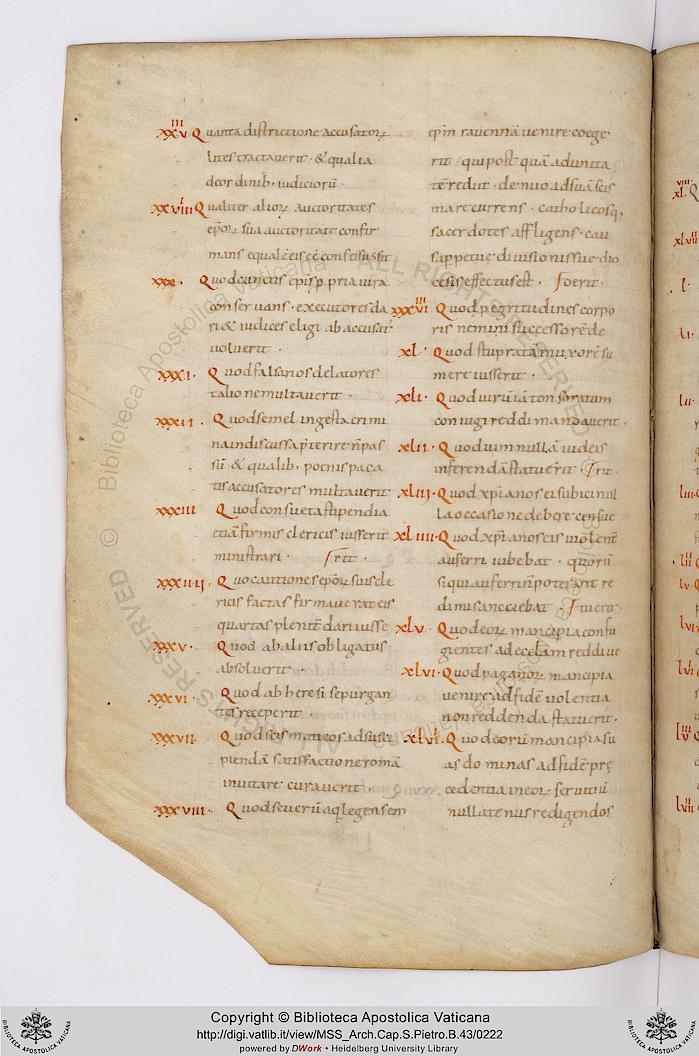 XXVIII. Quanta districtione accusatorꝝ
lites tractauerit · & qualia
de ordinib; iudiciorū ·
XXVIIII Qualiter aliorꝝ auctoritates
ep̄orꝝ sua auctoritate confir
mans equalē eis eē confessus sit
XXX. Quod cunctis episꝑ pria iura
conseruans · executores da
ri & iudices eligi ab accusat̄
uoluerit ·
XXXI. Quod falsarios delatores
talione multauerit ·
XXXII. Quod semel ingesta crimi
na indiscussa p̄terire n̄ pas
sū · & qualib; poenis paca
tis accusatores multauerit
XXXIII Quod consueta stipendia
etiā firmis clericis iusserit
ministrari · rit ·
XXXIIII. Quo cautiones ep̄orꝝ suis cle
ricis factas firmauerat eis
quartas plenit̄ dari iusse
XXXV. Quod ab aliis obligatus
absoluerit ·
XXXVI Quod ab heresi se purgan
tes receperit
XXXVII Quod scismaticos ad susci
piendā satisfactione romā
inuitare curauerit ·
XXXVIII. Quod seuerū aq̄legensem
ep̄m rauennā uenire coege
rit · qui post quā ad unita
tē rediit · denuo ad suā scis
ma recurrens · catholicosq;
sacerdotes affligens · cau
sa dio
cesis effectus est · foerit ·
XXXVIIII Quod ꝑ egritudines corpo
ris nemini successorē de
XL. Quod stupratā in uxorē su
mere iusserit ·
XLI. Quod uirū iā tonsoratum
coniugi reddi mandauerit ·
XLII. Quod uim nullā iudeis
inferendā statuerit rit ·
XLIII. Quod xp̄ianos eis subici nul
la occasione debere censue
XLIIII. Quod xp̄ianos eis uiolent̄
auferri iubebat · quorū
si qui auferri n̄ poterant re
dimi sanciebat · tuerit ·
XLV. Quod eorꝝ mancipia confu
gientes ad eclesiam reddi ue
XLVI. Quod paganorꝝ mancipia
uenire ad fidē uolentia
non reddenda statuerit ·
XLVII. Quod eorū mancipia su
as dominas ad fidē prę
cedentia in eorꝝ seruitiū
nullatenus redigendos
Copyright © Biblioteca Apostolica Vaticana
http://digi.vatlib.it/view/MSS_Arch.Cap.S.Pietro.B.43/0222
powered by DWork · Heidelberg University Library